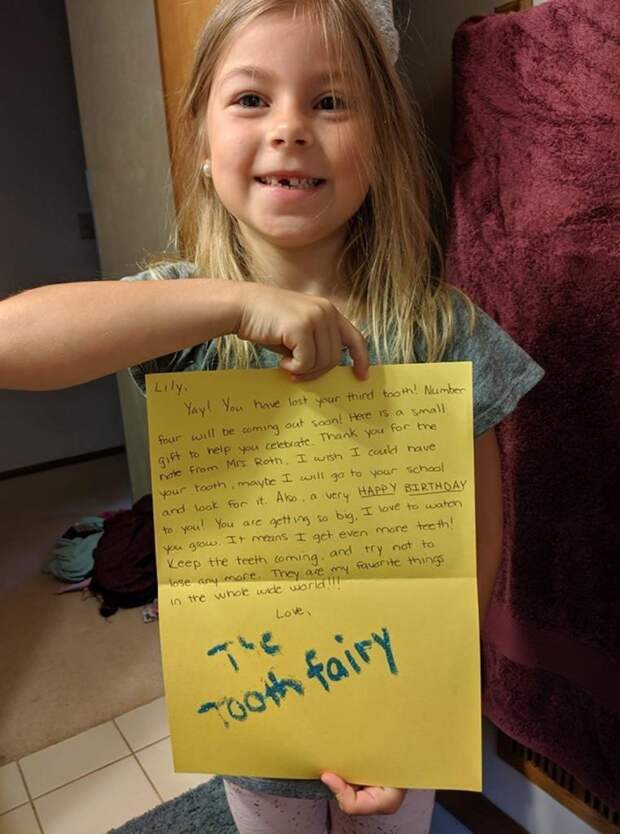 Lily,
Yay! You have lost your third tooth! Number
four will be coming out soon! Here is a small
gift to help you celebrate. Thank you for the
note from Mrs. Roth. I wish I could have
your tooth, maybe I will go to your school
and look for it. Also, a very HAPPY BIRTHDAY
to you! You are getting so big, I love to watch
you grow. It means I get even more teeth!
Keep the teeth coming, and try not to
lose any more. They are my favorite things
in the whole wide world!!!
Love,
The
Tooth fairy